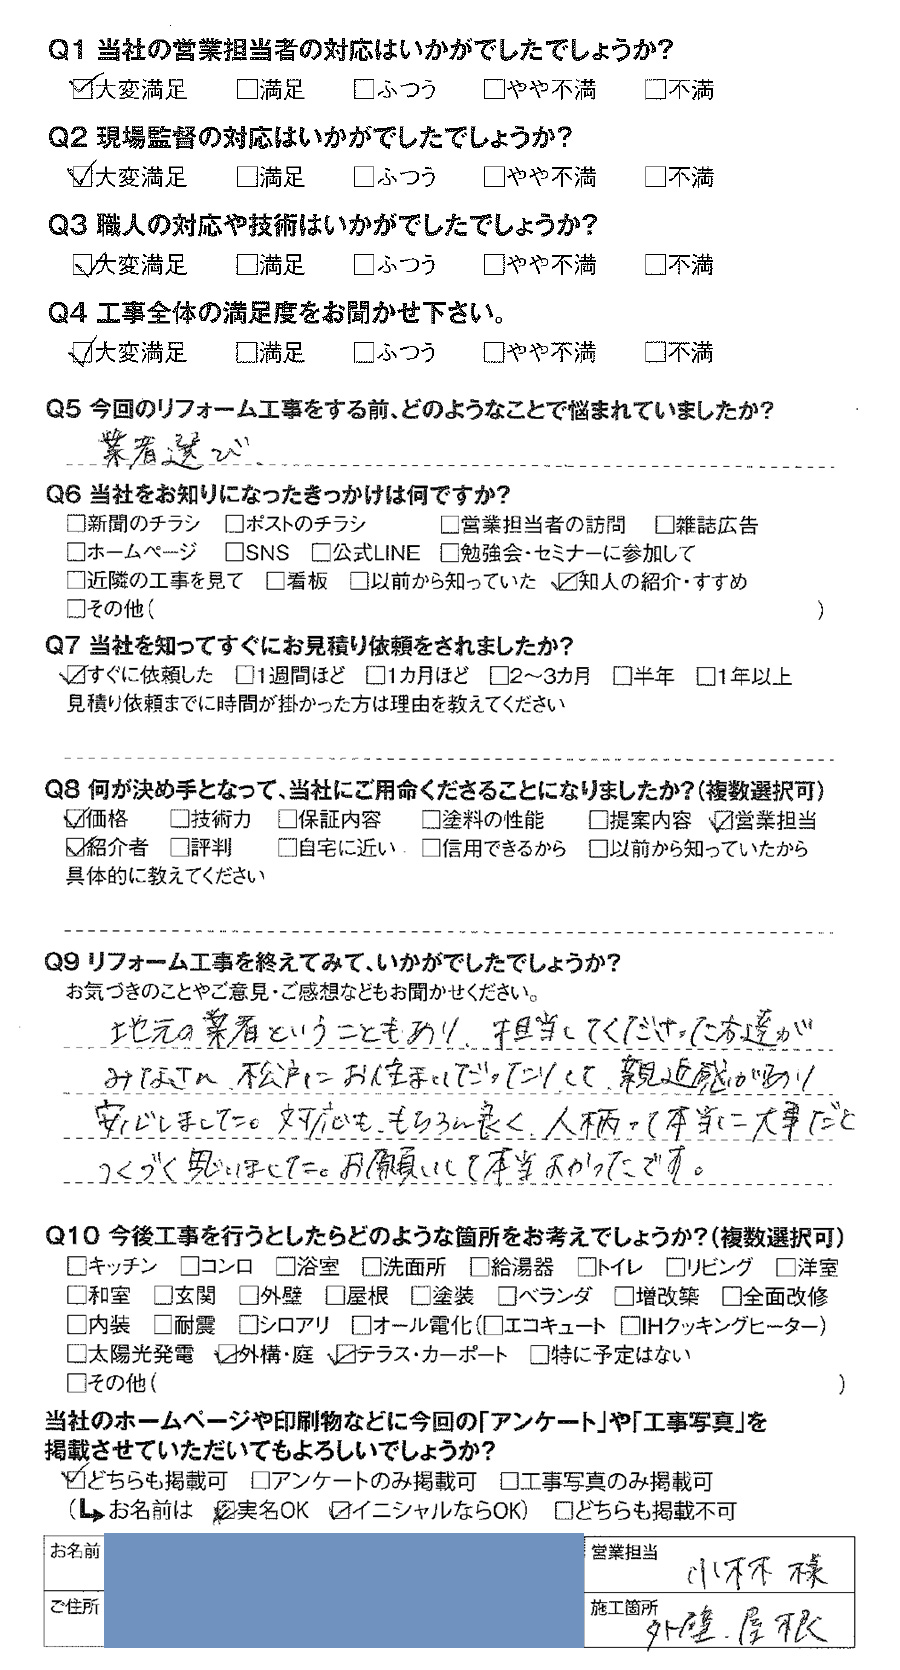 Q1 当社の営業担当者の対応はいかがでしたでしょうか?
☑大変満足 □満足 □ふつう □やや不満 □不満
Q2 現場監督の対応はいかがでしたでしょうか?
☑大変満足 □満足 □ふつう □やや不満 □不満
Q3 職人の対応や技術はいかがでしたでしょうか?
☑大変満足 □満足 □ふつう □やや不満 □不満
Q4 工事全体の満足度をお聞かせ下さい。
☑大変満足 □満足 □ふつう □やや不満 □不満
Q5 今回のリフォーム工事をする前、どのようなことで悩まれていましたか?
業者選び.
Q6 当社をお知りになったきっかけは何ですか?
□新聞のチラシ □ポストのチラシ □営業担当者の訪問 □雑誌広告
□ホームページ □SNS □公式LINE □勉強会・セミナーに参加して
□近隣の工事を見て □看板 □以前から知っていた ☑知人の紹介・すすめ
□その他( )
Q7 当社を知ってすぐにお見積り依頼をされましたか?
☑すぐに依頼した □1週間ほど □1カ月ほど □2〜3カ月 □半年 □1年以上
見積り依頼までに時間が掛かった方は理由を教えてください
Q8 何が決め手となって、当社にご用命くださることになりましたか?(複数選択可)
☑価格 □技術力 □保証内容 □塗料の性能 □提案内容 ☑営業担当
☑紹介者 □評判 □自宅に近い □信用できるから □以前から知っていたから
具体的に教えてください
Q9 リフォーム工事を終えてみて、いかがでしたでしょうか?
お気づきのことやご意見・ご感想などもお聞かせください。
地元の業者ということもあり、担当してくださった方達が
みなさん、松戸にお住まいだったりして、親近感があり
安心しました。対応も、もちろん良く、人柄って本当に大事だと
つくづく思いました。お願いして本当よかったです。
Q10 今後工事を行うとしたらどのような箇所をお考えでしょうか?(複数選択可)
□キッチン □コンロ □浴室 □洗面所 □給湯器 □トイレ □リビング □洋室
□和室 □玄関 □外壁 □屋根 □塗装 □ベランダ □増改築 □全面改修
□内装 □耐震 □シロアリ □オール電化(□エコキュート □IHクッキングヒーター)
□太陽光発電 ☑外構・庭 ☑テラス・カーポート □特に予定はない
□その他( )
当社のホームページや印刷物などに今回の「アンケート」や「工事写真」を
掲載させていただいてもよろしいでしょうか?
☑どちらも掲載可 □アンケートのみ掲載可 □工事写真のみ掲載可
(↳お名前は ☑実名OK ☑イニシャルならOK) □どちらも掲載不可
お名前 営業担当 小林 様
ご住所 施工箇所 外壁.屋根